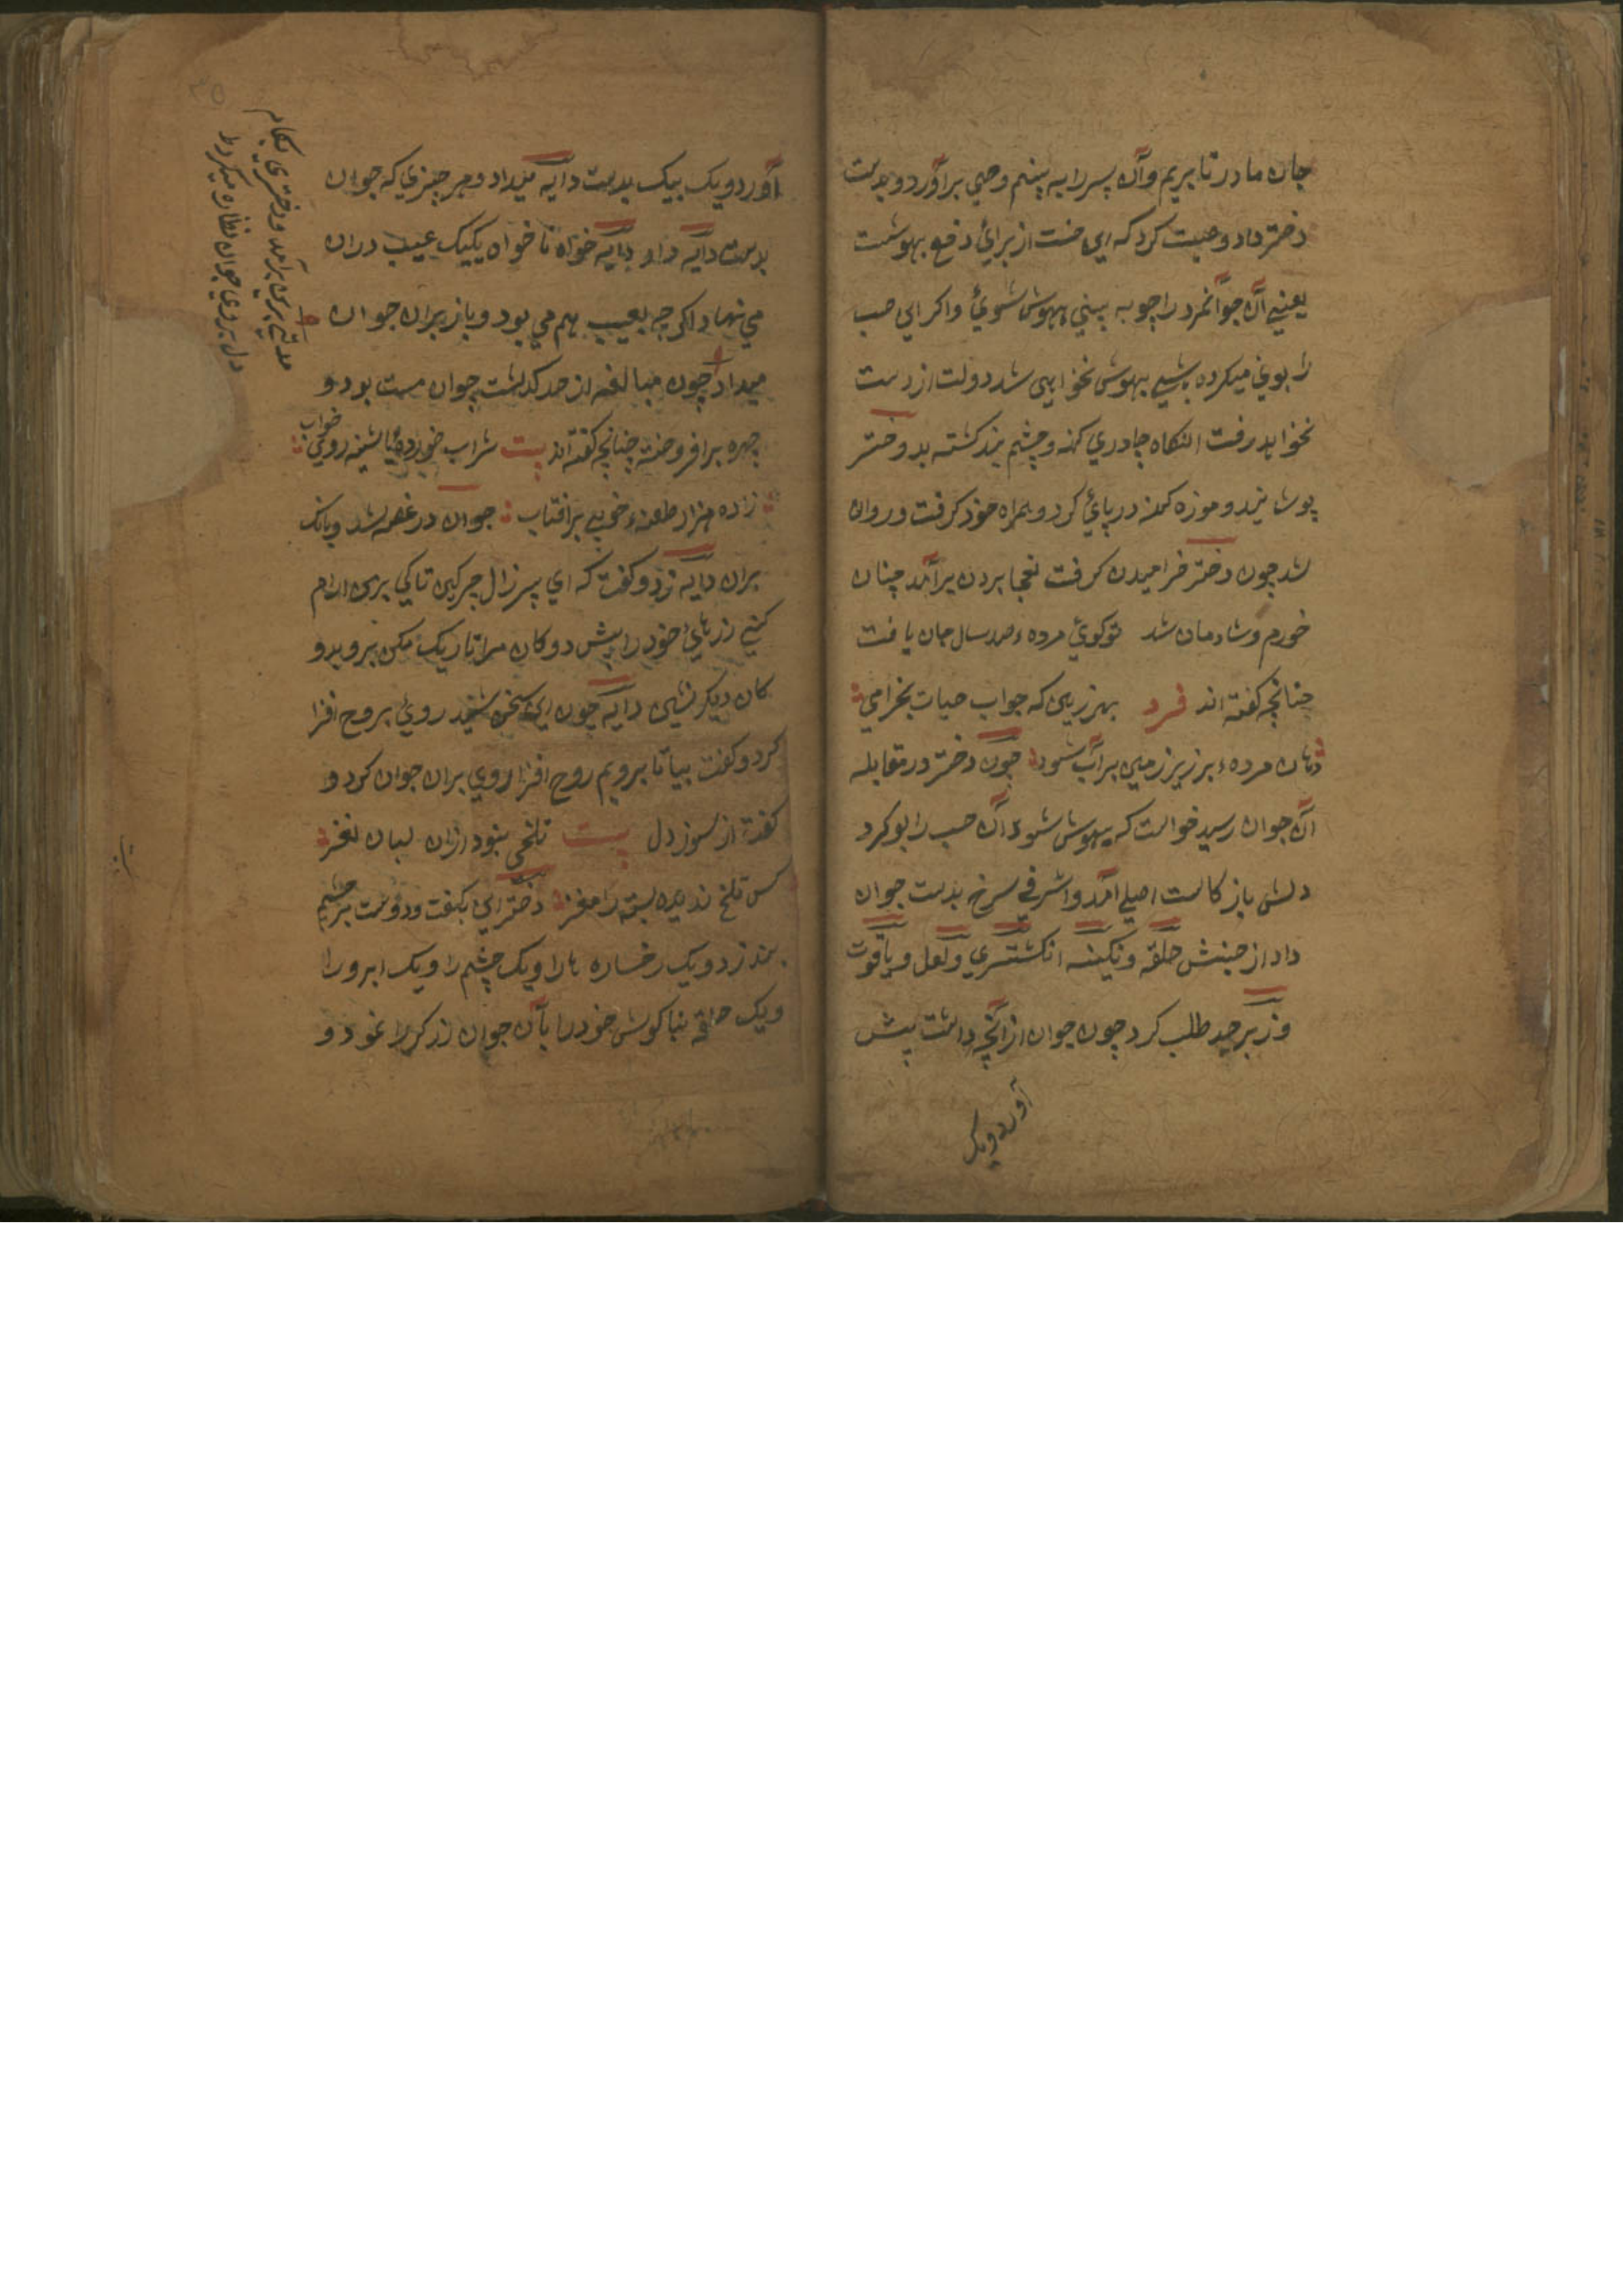 جان مادر تا بریم و آن پسر را به بینم و حبی برآورد و بدست
دختر داد و وصیت کرد که این از برائ دفع بهوشیت
یعنی آن جوانمرد را چو به بینی بیهوش شوئ و اکر این حب
را بوئ میکرده باشی بیهوش نخواهی شد دولت از دست
نخواهد رفت انکاه چادری کهنه و چشم بند کشته بدوختر
پوشانید و موزه کهنه در پائ کرد و همراه خود کرفت و روان
شد چون دختر خرامیدن کرفت برآمد چنان
خورم و شادمان شد توکوئ مرده ء صد سال جان یافت
چنانچه کفته اند فرد بهر زمین که جو آب حیات بخرامی
دهان مرده ء بر زیر زمین پر آب شود چون دختر در مقابله
آن جوان رسید خواست که بیهوش شود آن حب را بو کرد
دلش باز کالت اصلی آمد و اشرفی سرخ بدست جوان
داد از جنش حلقه و نکینه انکشتری و لعل و یاقوت
و زبرجد طلب کرد چون جوان از آنچه داشت پیش
آورد و یک
آورد و یک بیک بدست دایه میداد و هر چیزی که جوان
بدست دایه داد دایه خواه نا خواه یکیک عیب دران
می نهاد اکر چه بعیب هم می بود و باز بران جوان
میداد چون مبالغه از حد کذشت جوان مست بود و
چهره برافروخته چنانچه کفته اند بیت شراب خورده روئ خواب
زاده هزار طعنه ء خوبی بر افتاب جوان در غصه شد و بانک
بران دایه زد و کفت که ای پیر زال چرکین تاکی برین ارام
کنی زرهائ خود را پیش دوکان مرا تاریک مکن برو بدو
کان دیکر نشین دایه چون این سخن شنید روئ بروح افزا
کرد و کفت بیا تا برویم روح افزا روی بران جوان کرد و
کفت از سوز دل بیت تلخی نبود ازان لبان نغز
کس تلخ ندیده پسته را مغز دختر این بکفت و دوست بر چشم
بند زد و یک رخساره ها را و یک چشم را و یک ابرو را
و یک حلقه بناکوش خود را بآن جوان زرکر را نمود و
برآمد و دختری
دل بروی جوان نظاره میکرد